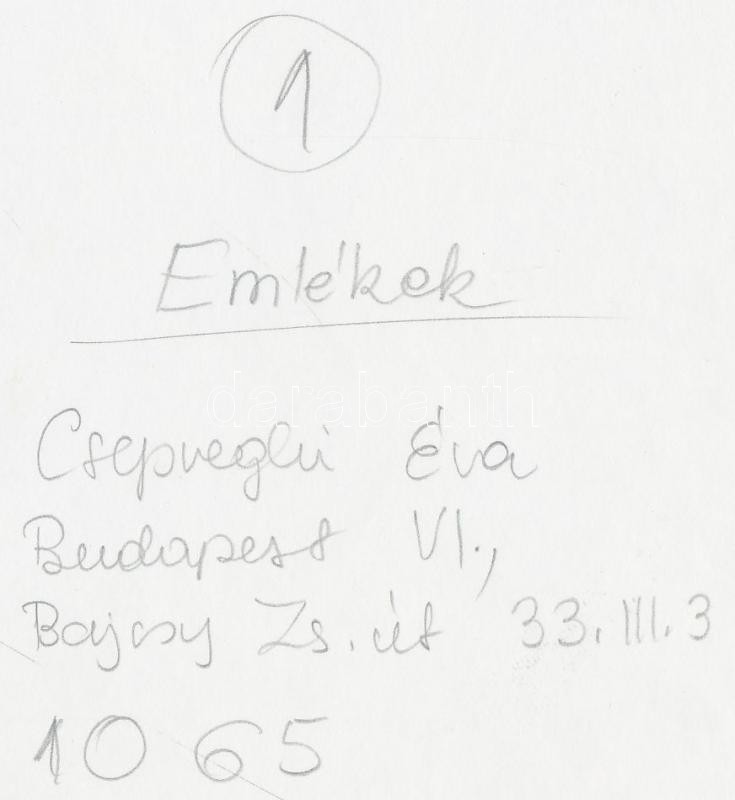 1
Emlékek
darabanth
Csepreghi Éva
Budapest VI.,
Bajcsy Zs. út 33. III. 3
1065